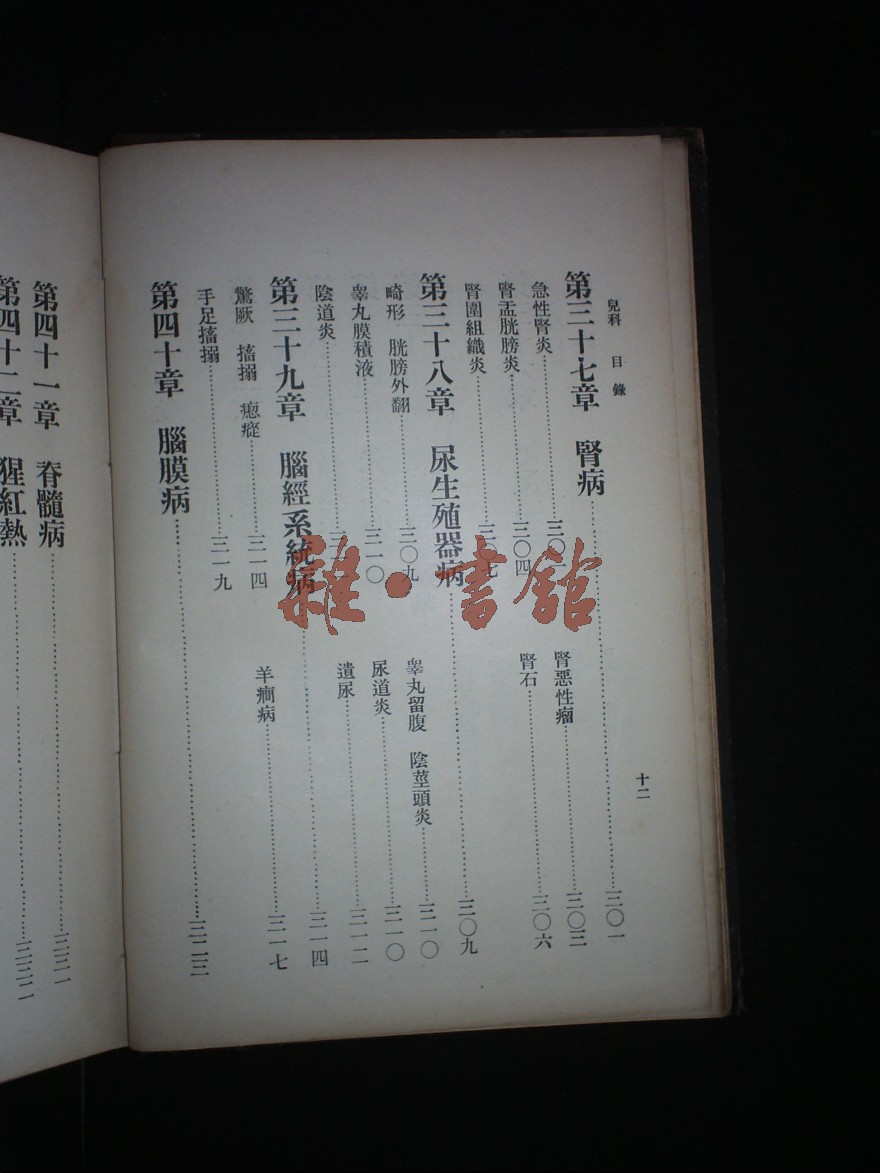 兒科 目錄
十二
第三十七章 腎病 三〇一
急性腎炎 腎惡性瘤 三〇三
腎盂胱膀炎 三〇四 腎石 三〇六
腎圍組織炎 三〇七
第三十八章 尿生殖器病 三〇九
畸形 胱膀外翻 三〇九 睾丸留腹 陰莖頭炎 三一〇
睾丸膜積液 三一〇 尿道炎 三一〇
陰道炎 遺尿 三一二
第三十九章 腦經系統病 三一四
驚厥 搐搦 瘛瘲 三一四 羊癎病 三一七
手足搐搦 三一九
第四十章 腦膜病 三二三
第四十一章 脊髓病
第四十二章 猩紅熱
雜·書館